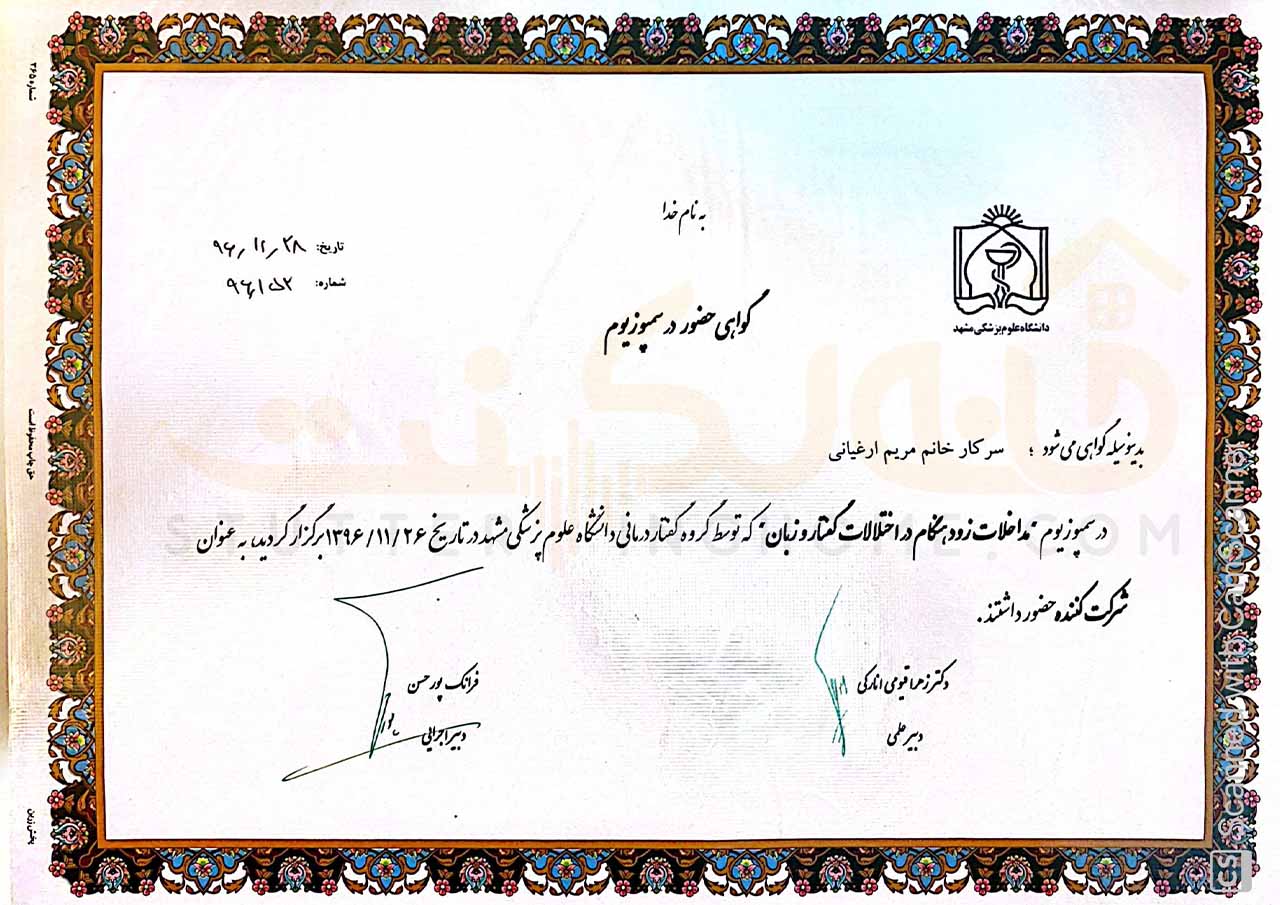 به نام خدا
تاریخ: ۹۶/۱۱/۲۸
شماره: ۹۶/۵۲
دانشگاه علوم پزشکی مشهد
گواهی حضور در سمپوزیوم
بدینوسیله گواهی می شود ؛ سرکار خانم مریم ارغیانی
در سمپوزیوم "مداخلات زودهنگام در اختلالات گفتار و زبان" که توسط گروه گفتاردرمانی دانشگاه علوم پزشکی مشهد در تاریخ ۱۳۹۶/۱۱/۲۶ برگزار گردید، به عنوان
شرکت کننده حضور داشتند.
دکتر زهرا قیومی انارکی
دبیر علمی
فرانک پورحسن
دبیر اجرایی
شماره ۲۶۵
حق چاپ محفوظ است
پخش زرین
CS Scanned with CamScanner